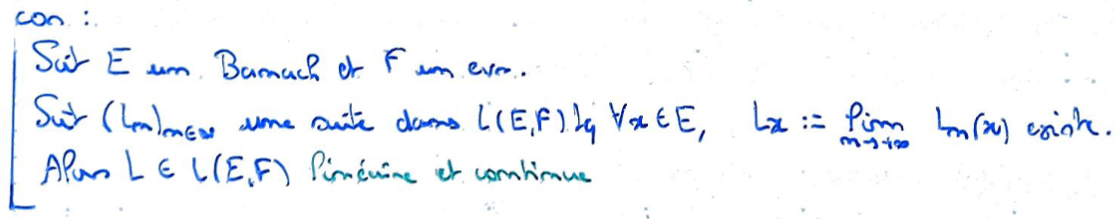 con :
Soit E un Banach et F un evn.
Soit (Ln)n∈ℕ une suite dans L(E,F) tq ∀x ∈ E, Lx := lim n→+∞ Ln(x) existe.
Alors L ∈ L(E,F) linéaire et continue